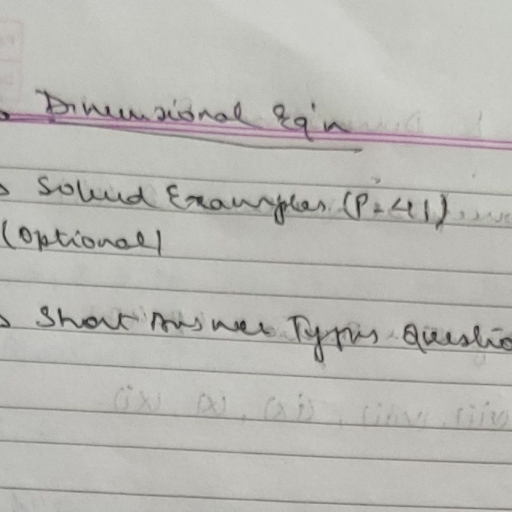 Dimensional Eq'n
Solved Examples (P-41)
(Optional)
Short Answer Types Questio